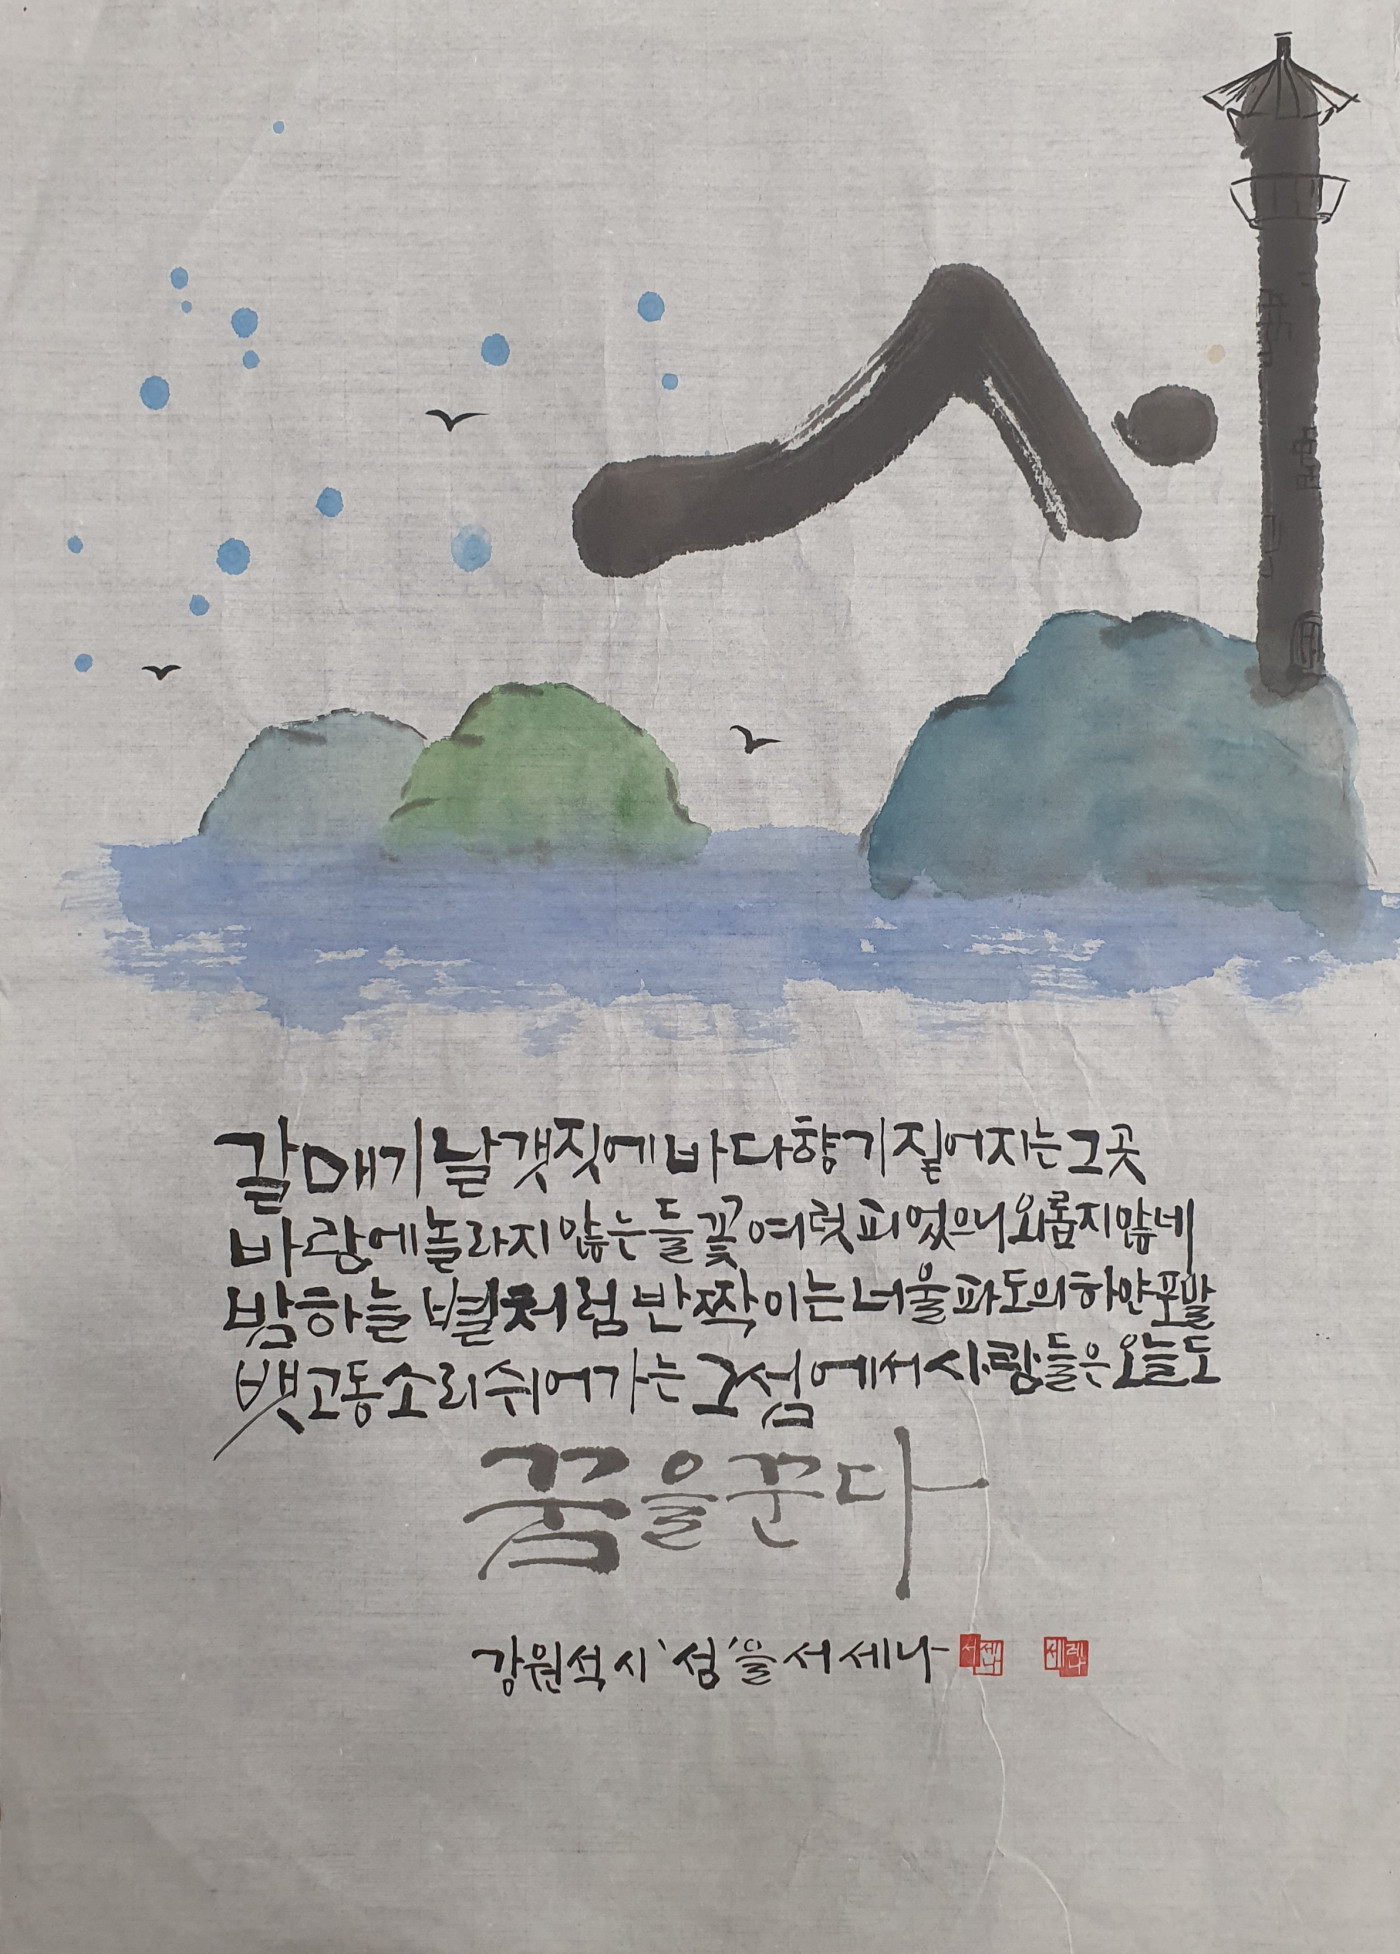 섬
갈매기 날갯짓에 바다향기 짙어지는 그곳
바람에 놀라지 않는 들꽃 여럿 피었으니 외롭지 않네
밤하늘 별처럼 반짝이는 너울파도의 하얀 포말
뱃고동소리 쉬어가는 그 섬에서 사람들은 오늘도
꿈을 꾼다
강원석 시 '섬'을 서세나
서세나 세레나